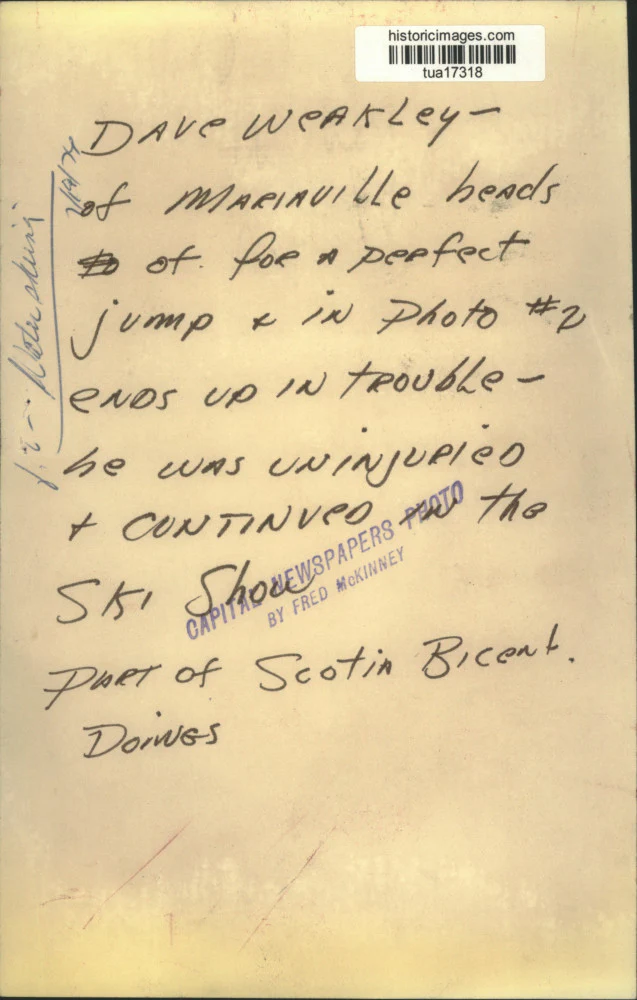 historicimages.com
tua17318
DAVE WEAKLEY -
of MARIAVILLE heads
of. for A perfect
jump & in Photo #2
ENDS UP IN TROUBLE -
he WAS UNINJURIED
+ CONTINUED IN the
SKI Show
CAPITAL NEWSPAPERS PHOTO
BY FRED McKINNEY
PART of Scotia Bicent.
DOINGS
Water skiing